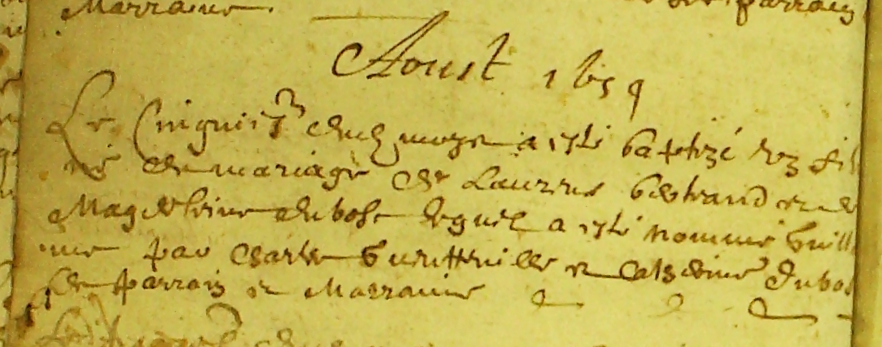 Marraine. parrain
Aoust 1659
Le Cinquies.e dud moys a esté baptizé un filz
né du mariage de Laurens bertrand et de
Magdeleine dubosc lequel a esté nommé Guill
me par Charles et Catherine dubos
ses parrain et Marraine